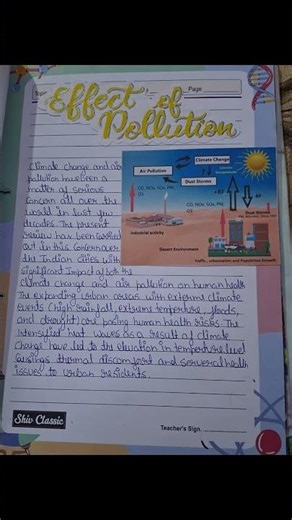 Page
Effect of
Pollution
Climate change and air
pollution have been a
matter of serious
concern all over the
world in last few
decades. The present
review has been carried
out in this concern over
the Indian cities with
significant impact of both the
climate change and air pollution on human health
The expanding urban areas with extreme climate
events (high rainfall, extreme temperature, floods,
and drought) are posing human health risks. The
intensified heat waves as a result of climate
change have led to the elevation in temperature level
causing thermal discomfort and several health
issues to urban residents.
Climate Change
Air Pollution
Dust Storms
CO, NOx, SOx, PM,
O3
CO, NOx, SOx, PM,
O3
Dust Storms
Industrial activity
Desert Environment
Traffic, Urbanization and Population Growth
Shiv Classic
Teacher's Sign